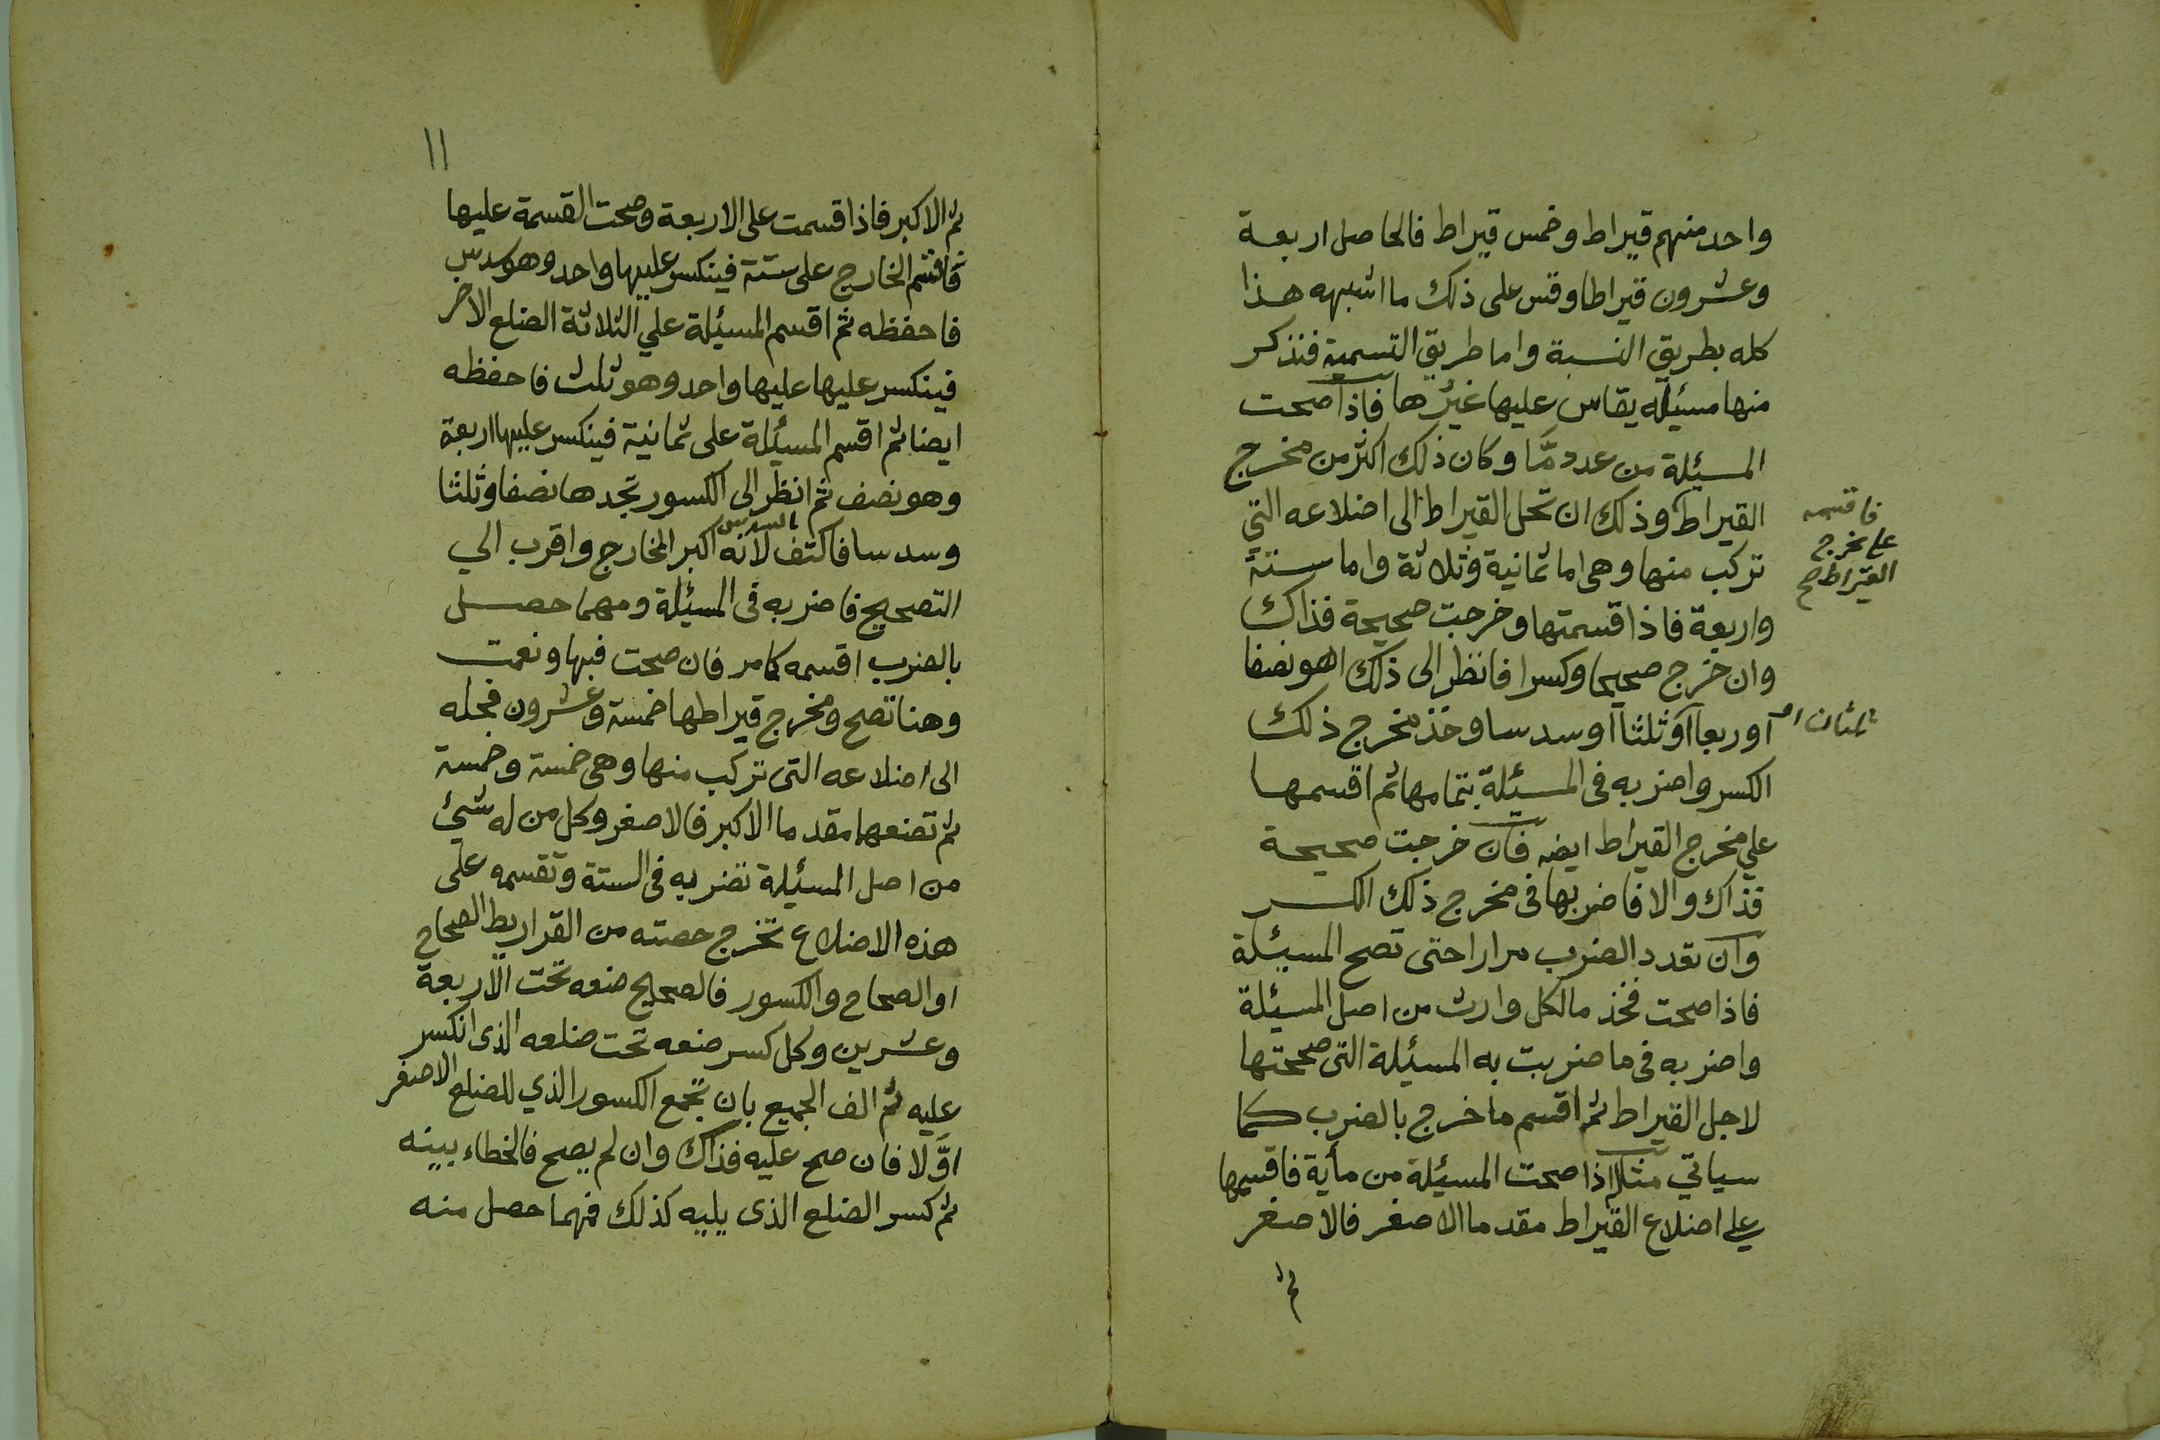 واحد منهم قيراط وخمس قيراط فالحاصل اربعة
وعشرون قيراطا وقس على ذلك ما اشبهه هذا
كله بطريق النسبة واما طريق التسمية فنذكر
منها مسئلة يقاس عليها غيرها فاذا صحت
المسئلة من عدد مّا وكان ذلك اكثر من مخرج
القيراط وذلك ان تحل القيراط الى اضلاعه التي
فاقسمه
على مخرج
القيراط صح
تركب منها وهى اما ثمانية وثلاثة واما ستة
واربعة فاذا قسمتها وخرجت صحيحة فذاك
وان خرج صحيحا وكسرا فانظر الى ذلك اهو نصفا
اوربعا اوثلثا اوسدسا وخذ مخرج ذلك
الكسر واضربه فى المسئلة بتمامها ثم اقسمها
علي مخرج القيراط ايضه فان خرجت صحيحة
فذاك والا فاضربها فى مخرج ذلك الكسر
وان تعدد الضرب مرارا حتى تصح المسئلة
فاذا صحت فخذ مالكل وارث من اصل المسئلة
واضربه فى ما ضربت به المسئلة التى صححتها
لاجل القيراط ثم اقسم ما خرج بالضرب كما
سياتي مثلا اذا صحت المسئلة من مأية فاقسمها
على اضلاع القيراط مقدما الاصغر فالاصغر
ثم
١١
ثم الاكبر فاذا قسمت على الاربعة وصحت القسمة عليها
فاقسم الخارج على ستة فينكسر عليها واحد وهو سدس
فاحفظه ثم اقسم المسئلة علي الثلاثة الضلع الاخر
فينكسر عليها عليها واحد وهو ثلث فاحفظه
ايضا ثم اقسم المسئلة على ثمانية فينكسر عليها اربعة
وهو نصف ثم انظر الى الكسور تجدها نصفا وثلثا
وسدسا فاكتف بالسدس لانه اكبر المخارج واقرب الي
التصحيح فاضربه فى المسئلة ومهما حصل
بالضرب اقسمه كما مر فان صحت فبها ونعمت
وهنا تصح ومخرج قيراطها خمسة وعشرون فحله
الى اضلاعه التى تركب منها وهى خمسة وخمسة
ثم تضعها مقدما الاكبر فالاصغر وكل من له شئ
من اصل المسئلة تضربه فى الستة وتقسمه على
هذه الاضلاع تخرج حصته من القراريط الصحاح
او الصحاح والكسور فالصحيح ضعه تحت الاربعة
وعشرين وكل كسر ضعه تحت ضلعه الذى انكسر
عليه ثم الف الجميع بان تجمع الكسور الذي للضلع الاصغر
اوّلا فان صح عليه فذاك وان لم يصح فالخطاء بينه
ثم كسر الضلع الذى يليه كذلك فمهما حصل منه